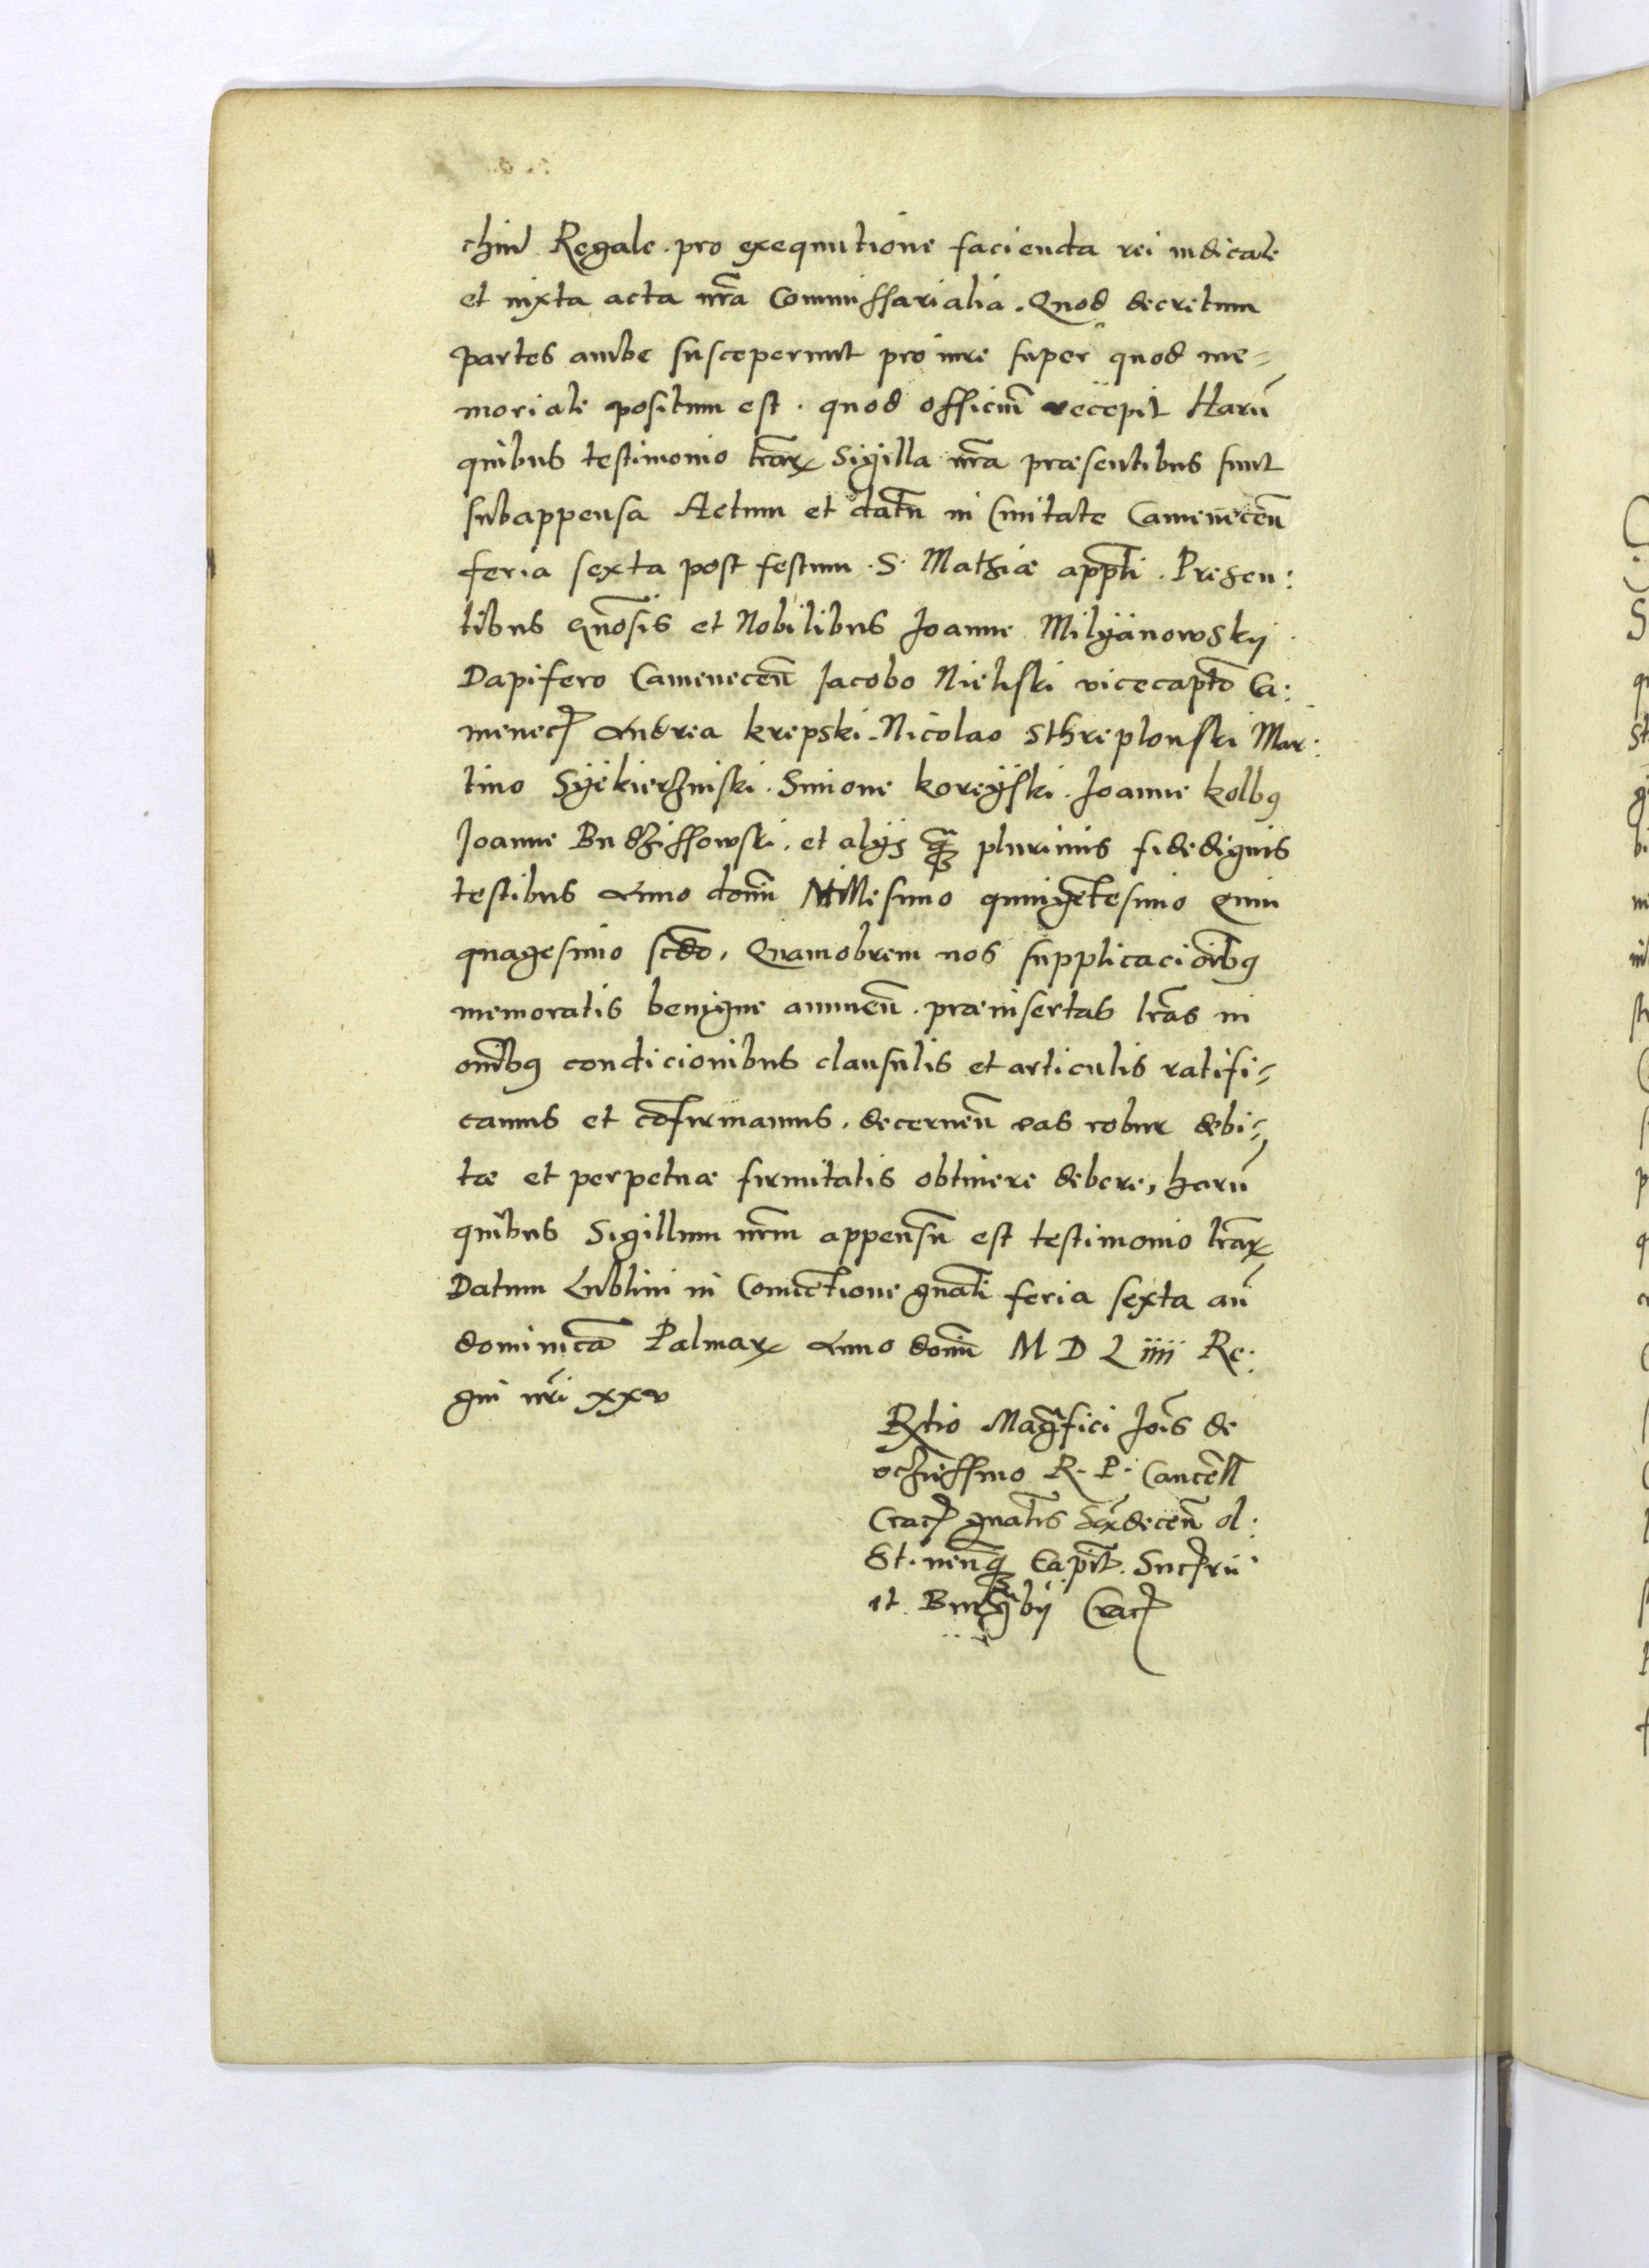 chiu Regale. pro exequutione facienda rei iudicate
et iuxta acta nrã Commissarialia. Quod decretum
partes ambe susceperunt pro iure super quod me=
moriale positum est. quod officiũ recepit Harũ
quibus testimonio lrãꝝ Sigilla nrã præsentibus sunt
subappensa Actum et datũ in Ciuitate Camenecen̄
feria sexta post festum .S. Mathiæ appłi. Presen:
tibus Gnõsis et Nobilibus Joanne Milyanowskij
Dapifero Camenecen̄ Jacobo Nielyski vicecaptõ Ca:
menec̄ Andrea krepski. Nicolao Sthreplouski Mar:
tino Syekierzinski. Simone koreyski. Joanne kolbꝯ
Joanne Budzissowski. et alijs plurimis fidedignis
testibus Anno domĩ Millesimo quingẽtesimo Quin
quagesimo scdõ, Quamobrem nos supplicaciõibꝯ
memoratis benigne annuen̄. præinsertas lrãs in
omĩbꝯ condicionibus clausulis et articulis ratifi=
camus et cõfirmamus. decernen̄ eas robur debi=
tæ et perpetuæ firmitatis obtinere debere, harũ
quibus Sigillum nrm̃ appensũ est testimonio lrãꝝ
Datum Lublini in Conuẽtione gnãli feria sexta añ
dominicã Palmaꝝ Anno domĩ M D L iiii Re:
gni nrĩ xxv
Rtĩo Magᷓfici Joĩs de
ochiessino R. P. Cancełł
Crac̄ gnãlis Sãdecen̄ ol:
St. nen̄qꝫ Capit̃.
et Burgᷓbij Crac̄